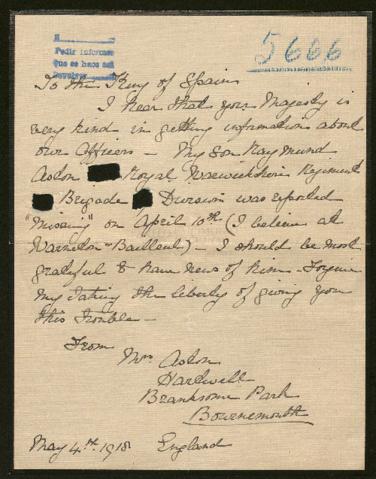 A
Pedir informes
Que se hace así
5666
To the King of Spain
I hear that your Majesty is
very kind in getting information about
our Officers — My Son Raymund
Aston Royal Warwickshire Regiment
Brigade Division was reported
"Missing" on April 10th (I believe at
Warneton-Bailleul) — I should be most
grateful to have news of him — Forgive
my taking the liberty of giving you
this trouble —
From
Mrs Aston
Branksome Park
Bournemouth
May 4th. 1918 England